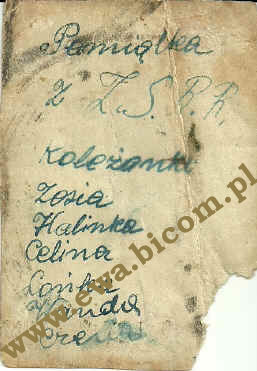 Pamiątka
z Z.S.R.R.
Koleżanki
Zosia
Halinka
Celina
Lońka
Wanda
www.ewa.bicom.pl